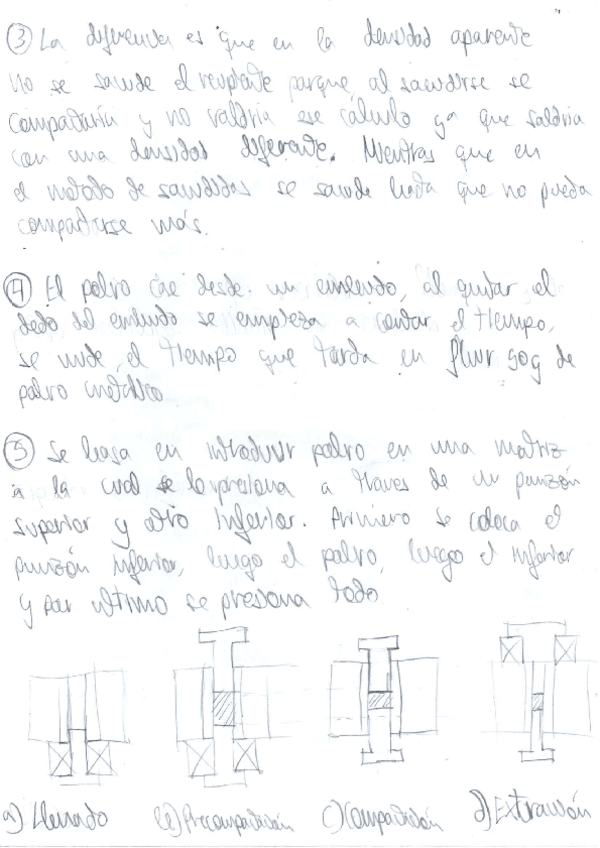 ③ La diferencia es que en la densidad aparente
no se sacude el recipiente porque, al sacudirse se
compactaría y no valdría ese cálculo ya que saldría
con una densidad diferente. Mientras que en
el método de sacudidas se sacude hasta que no pueda
compactarse más.
④ El polvo cae desde un embudo, al quitar el
dedo del embudo se empieza a contar el tiempo,
se mide el tiempo que tarda en fluir 50g de
polvo metálico
⑤ Se basa en introducir polvo en una matriz
a la cual se lo presiona a traves de un punzón
superior y otro inferior. Primero se coloca el
punzón inferior, luego el polvo, luego el inferior
y por ultimo se presiona todo
a) Llenado b) Precompactación c) Compactación d) Extracción